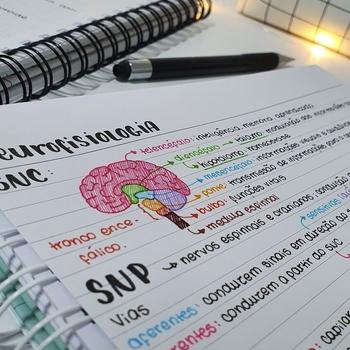 eurofisiologia
SNC:
telencéfalo: inteligência, memória, aprendizado
diencéfalo → tálamo: modulação das informações
hipotálamo: homeostase
mesencéfalo: informações visuais e
ponte: transmissão de informações para o
bulbo: funções vitais
medula espinal
tronco ence-
fálico.
SNP → nervos espinhais e cranianos: condução
sensitivas
Vias
aferentes: conduzem sinais em direção ao
erentes: conduzem a partir do SNC